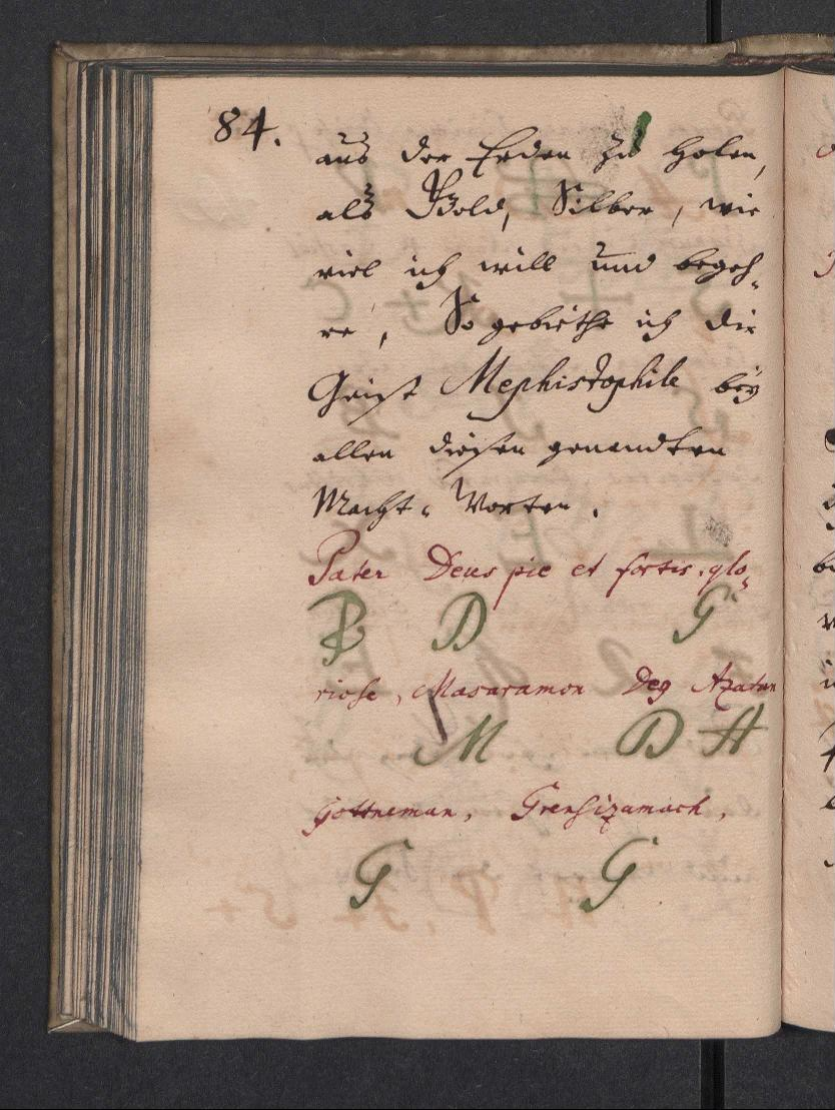 84.
aus der Erden zu holen,
als Gold, Silber, wie
viel ich will und begeh„
re, So gebiethe ich dir
Geist Mephistophile beÿ
allen diesen genandten
Macht„ Worten.
Pater Deus pie et fortis. glo„
P D G
riose, Masaramon Deg Azatan
M D A
Gottneman, Grensizamach,
G G